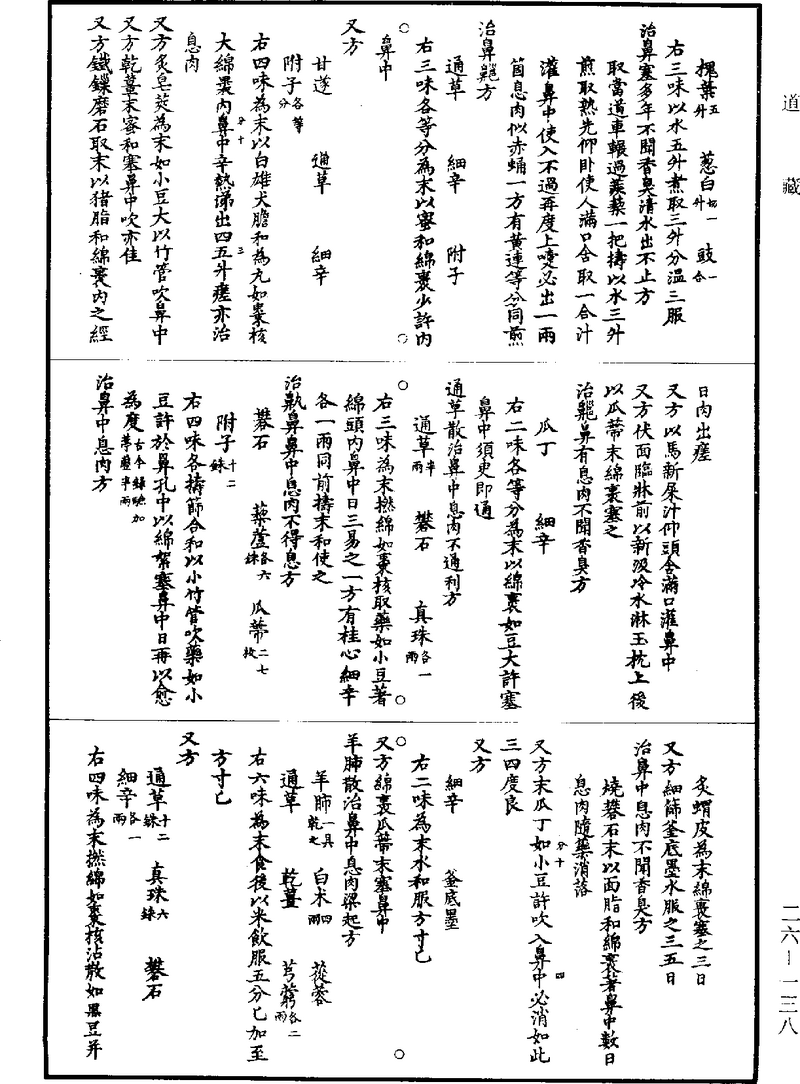 道藏
槐葉五升　葱白切一升　豉一合
右三味以水五升煮取三升分溫三服
治鼻塞多年不聞香臭清水出不止方
取當道車輾過蒺蔾一把擣以水三升
煎取熟先仰臥使人滿口含取一合汁
灌鼻中使入不過再度上嚏必出一兩
箇息肉似赤蛹一方有黃連等分同煎
治鼻齆方
通草　細辛　附子
右三味各等分為末以蜜和綿裹少許内
鼻中
又方
甘遂　通草　細辛
附子各等分
右四味為末以白雄犬膽和為丸如棗核
大綿裹内鼻中辛熱涕出四五升瘥亦治
息肉
又方炙皂莢為末如小豆大以竹管吹鼻中
又方乾薑末蜜和塞鼻中吹亦佳
又方鐵鏁磨石取末以猪脂和綿裹内之經
日肉出瘥
又方以馬新屎汁仰頭含滿口灌鼻中
又方伏面臨牀前以新汲冷水淋玉枕上後
以瓜蔕末綿裹塞之
治齆鼻有息肉不聞香臭方
瓜丁　細辛
右二味各等分為末以綿裹如豆大許塞
鼻中須臾即通
通草散治鼻中息肉不通利方
通草半兩　礬石　真珠各一兩
右三味為末撚綿如棗核取藥如小豆著
綿頭内鼻中日三易之一方有桂心細辛
各一兩同前擣末和使之
治鼽鼻鼻中息肉不得息方
礬石　藜蘆各六銖　瓜蔕二七枚
附子十二銖
右四味各擣篩合和以小竹管吹藥如小
豆許於鼻孔中以綿絮塞鼻中日再以愈
為度古今錄驗加葶藶半兩
治鼻中息肉方
炙蝟皮為末綿裹塞之三日
又方細篩釜底墨水服之三五日
治鼻中息肉不聞香臭方
燒礬石末以面脂和綿裹著鼻中數日
息肉隨藥消落
又方末瓜丁如小豆許吹入鼻中必消如此
三四度良
又方
細辛　釜底墨
右二味為末水和服方寸匕
又方綿裹瓜蔕末塞鼻中
羊肺散治鼻中息肉梁起方
羊肺一具乾之　白朮四兩　蓯蓉
通草　乾薑　芎藭各二兩
右六味為末食後以米飲服五分匕加至
方寸匕
又方
通草十二銖　真珠六銖　礬石
細辛各一兩
右四味為末撚綿如棗核沾散如黑豆并
二六－一三八